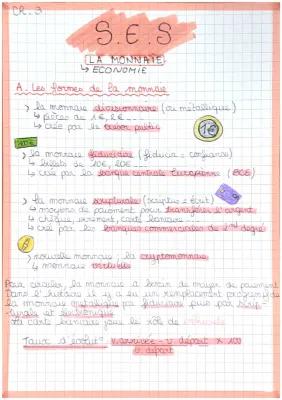 Ch. 3
S.E.S
LA MONNAIE
↳ ECONOMIE
A. Les formes de la monnaie
> la monnaie divisionnaire (ou métallique)
↳ pièces de 1€, 2€ ...
↳ crée par le trésor public
1€
> la monnaie fiduciaire (fiducia = confiance)
↳ billets de 10€, 20€ ...
↳ crée par la banque centrale Européenne (BCE)
> la monnaie scripturale (scriptus = écrit)
↳ moyens de paiement pour transférer l'argent
↳ chèque, virement, carte bancaire
↳ crée par les banques commerciales de 2nd degré
> nouvelle monnaie : la cryptomonnaie
↳ monnaie virtuelle
Pour circuler, la monnaie a besoin de moyen de paiement
Dans l'histoire il y a eu un remplacement progressif de
la monnaie métallique par fiduciaire puis par scrip-
turale et électronique
la carte bancaire joue le rôle de
Taux d'évolut° = v.arrivée - v départ x 100
v.départ